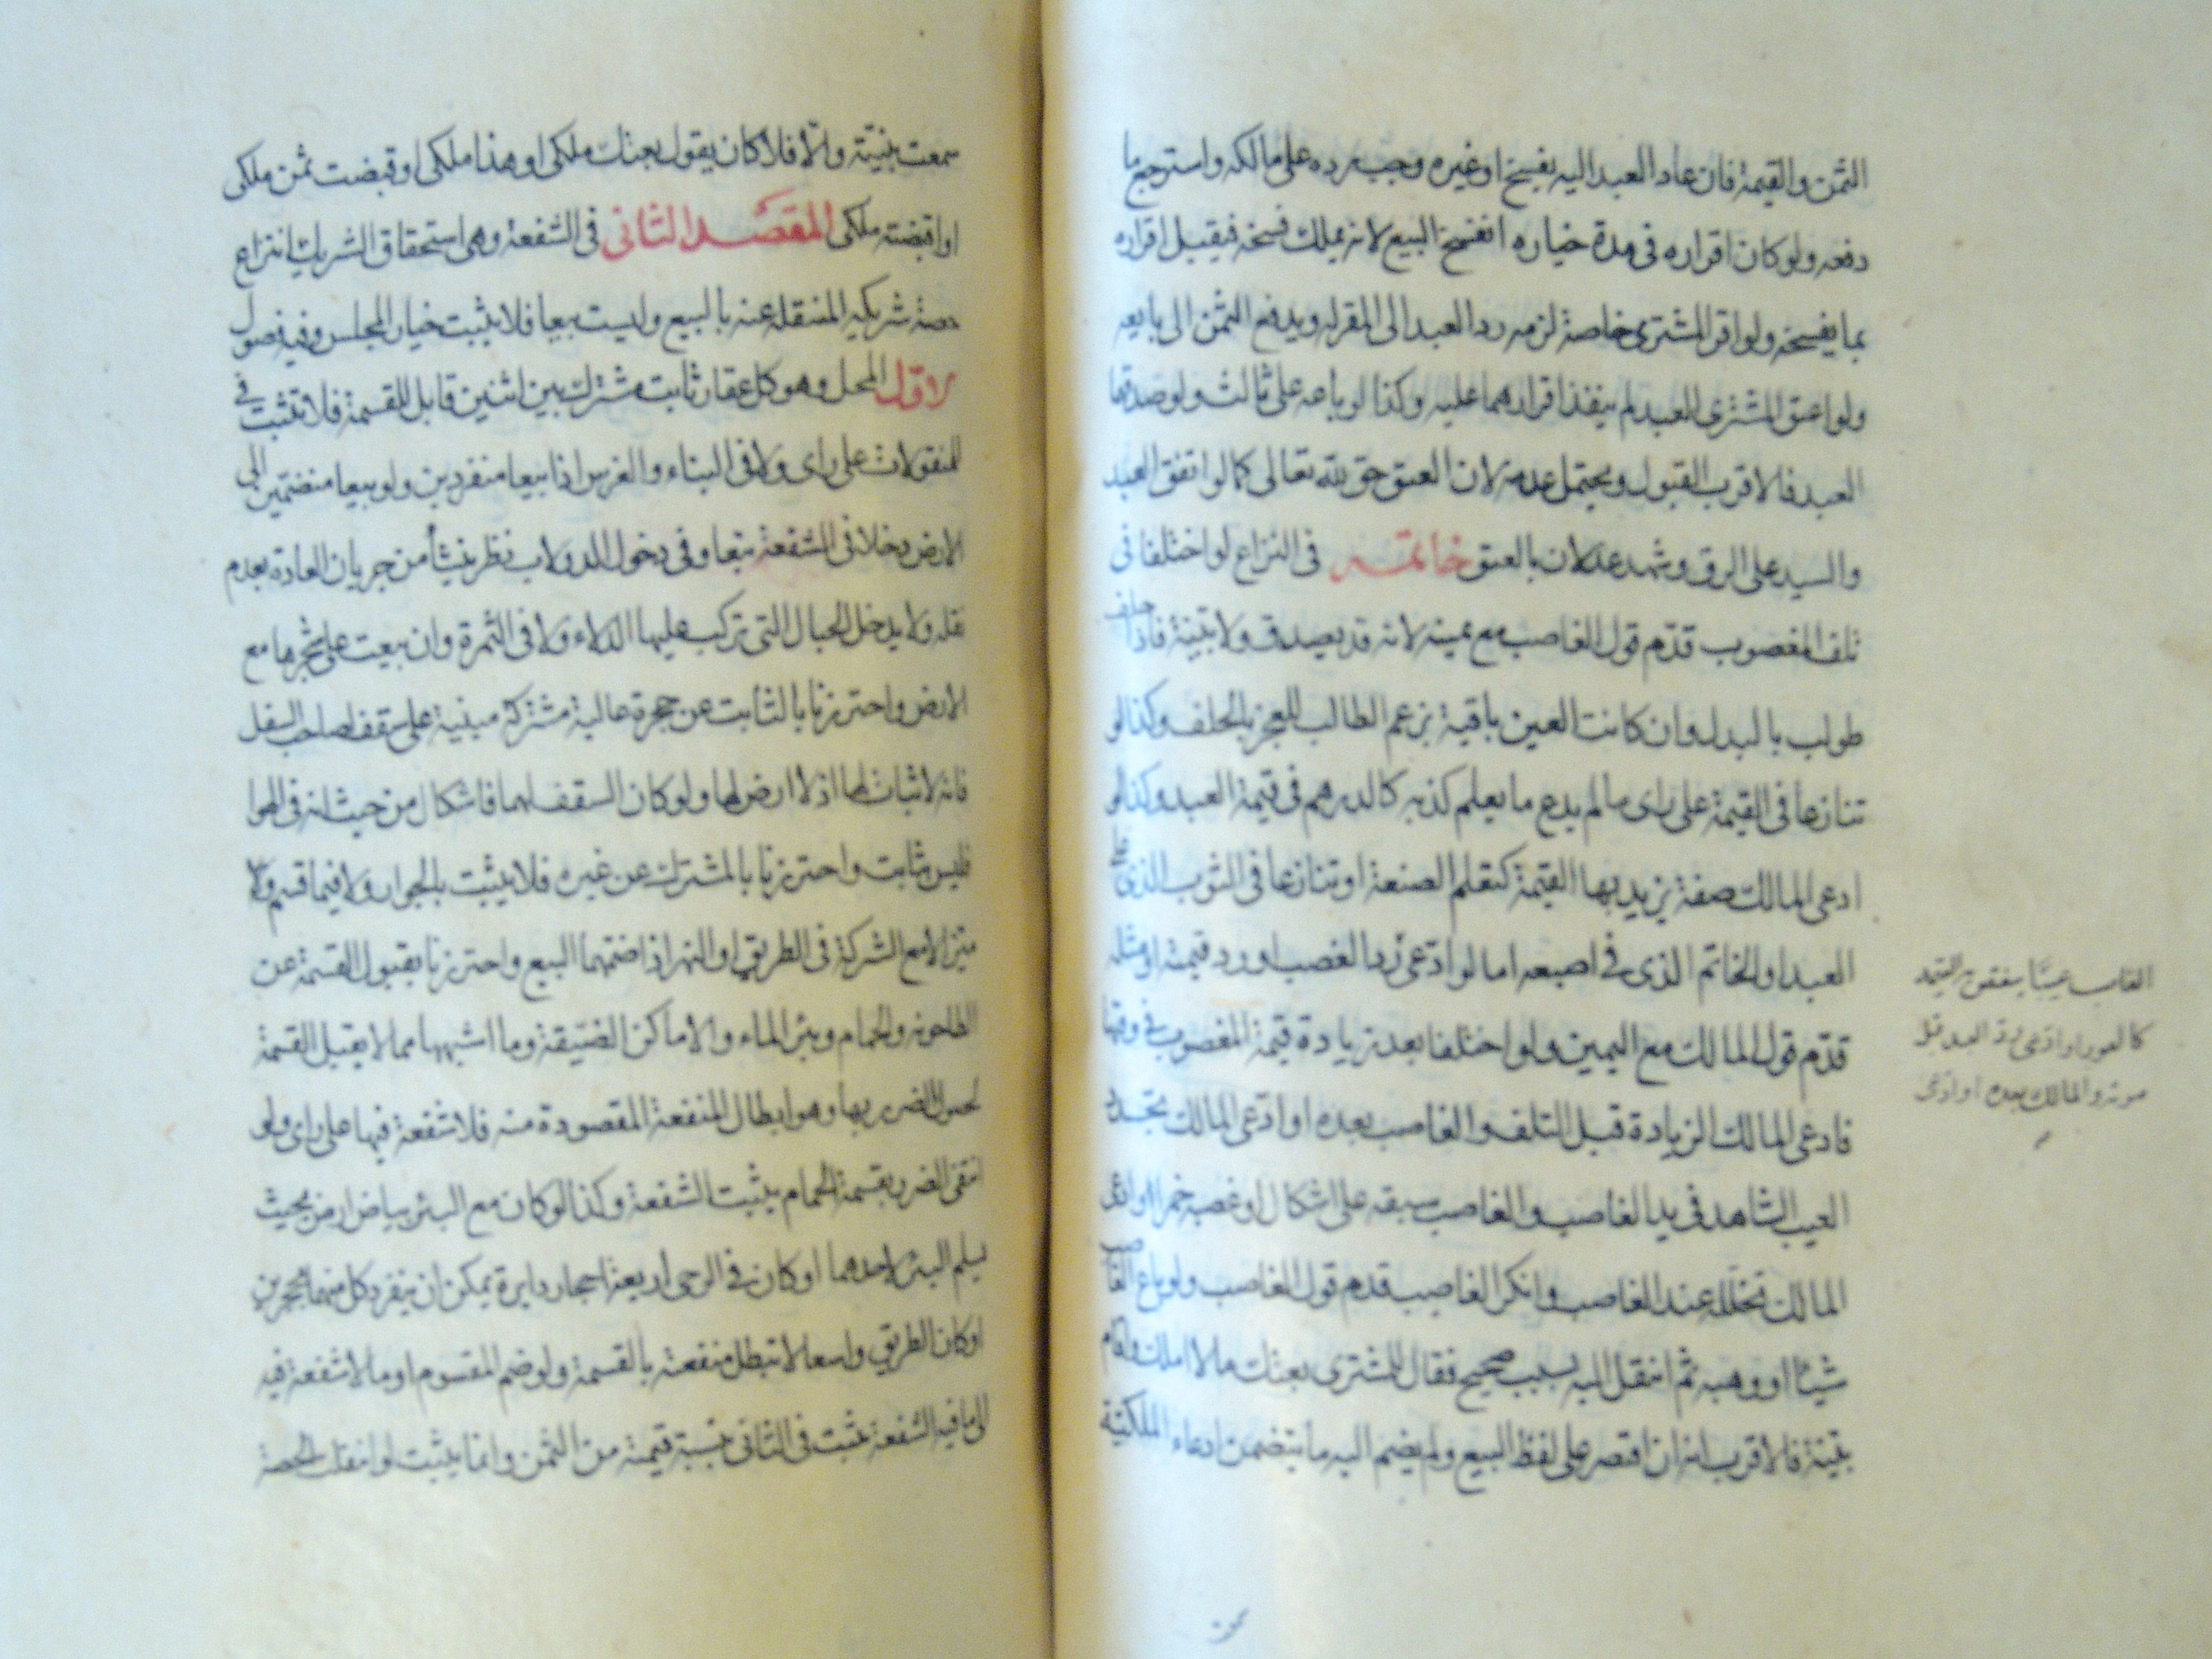 الثمن والقيمة فان عاد العبد اليه بفسخ او غيره وجب رده على مالكه واسترجع ما
دفعه ولو كان اقراره فى مدة خياره انفسخ البيع لانه يملك فسخه فيقبل اقراره
بما يفسخه ولو اقر المشترى خاصة لزمه رد العبد الى المقر له ويدفع الثمن الى بايعه
ولو اعتق المشترى العبد لم ينفذ اقرارهما عليه وكذا لو باعه على ثالث ولو صدقهما
العبد فالاقرب القبول ويحتمل عدمه لان العتق حق لله تعالى كما لو اتفق العبد
والسيد على الرق وشهد عدلان بالعتق خاتمة فى النزاع لو اختلفا فى
تلف المغصوب قدّم قول الغاصب مع يمينه لانه قد يصدق ولا بيّنة فاذا حلف
طولب بالبدل وان كانت العين باقية بزعم الطالب للعجز بالحلف وكذا لو
تنازعا فى القيمة على راى ما لم يدع ما يعلم كذبه كالدرهم فى قيمة العبد وكذا لو
ادعى المالك صفة يزيد بها القيمة كتعلم الصنعة او تنازعا فى الثوب الذى على
العبد او الخاتم الذى فى اصبعه اما لو ادّعى
قدّم قول المالك مع اليمين ولو اختلفا بعد زيادة قيمة المغصوب فى وقتها
فادعى المالك الزيادة قبل التلف والغاصب بعده او ادّعى المالك تجدد
العيب الشاهد فى يد الغاصب والغاصب سبقه على اشكال او غصبه خمرا وادعى
المالك تخلله عند الغاصب وانكر الغاصب قدم قول الغاصب ولو باع الغاصب
شيئا او وهبه ثم انتقل اليه بسبب صحيح فقال للمشترى بعتك ما لا املك واقام
بيّنة فالاقرب انه ان اقتصر على لفظ البيع ولم يضم اليه ما يتضمن ادعاء الملكية
كالعور او ادّعى رد العبد قبل
موته والمالك بعده او ادّعى
سمعت
سمعت بيّنته والّا فلا كان يقول بعتك ملكى او هذا ملكى او قبضت ثمن ملكى
او اقبضته ملكى المقصد الثانى فى الشفعة وهى استحقاق الشريك انتزاع
حصة شريكه المنتقلة عنه بالبيع وليست بيعا فلا يثبت خيار المجلس وفيه فصول
الاول المحل وهو كل عقار ثابت مشترك بين اثنين قابل للقسمة فلا تثبت فى
المنقولات على راى ولا فى البناء والغرس اذا بيعا منفردين ولو بيعا منضمين الى
الارض دخلا فى الشفعة تبعا وفى دخول الدولاب نظر ينشأ من جريان العادة بعدم
نقله ولا يدخل الحبال التى تركب عليها الدلاء ولا فى الثمرة وان بيعت على شجرها مع
الارض واحترزنا بالثابت عن حجرة عالية مشتركة مبنية على سقف لصاحب السفل
فانه لا ثبات لها اذ لا ارض لها ولو كان السقف لهما فاشكال من حيث انه فى الهوا
فليس بثابت واحترزنا بالمشترك عن غيره فلا يثبت بالجوار ولا فيما قسم ولا
ميّز الا مع الشركة فى الطريق او النهر اذا ضمّهما البيع واحترزنا بقبول القسمة عن
الطاحونه والحمام وبئر الماء والاماكن الضيّقة وما اشبهها مما لا يقبل القسمة
لحصول الضرر بها وهو ابطال المنفعة المقصودة منه فلا شفعة فيها على راى ولو
انتفى الضرر بقسمة الحمام يثبت الشفعة وكذا لو كان مع البئر بياض ارض بحيث
يسلم البئر لاحدهما او كان فى الرحى اربعة احجار دايرة يمكن ان ينفرد كل منهما بحجرين
او كان الطريق واسعا لا تبطل منفعته بالقسمة ولو ضم المقسوم او ما لا شفعة فيه
الى ما فيه الشفعة تثبت فى الثانى بنسبة قيمته من الثمن وانما يثبت لو انتقلت الحصة